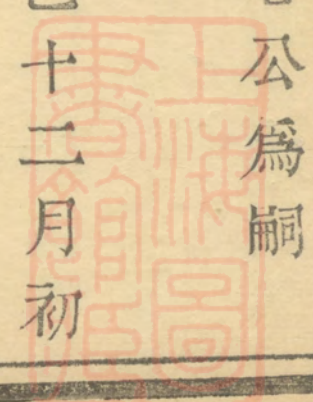 公爲嗣
十二月初
上海圖
書館藏